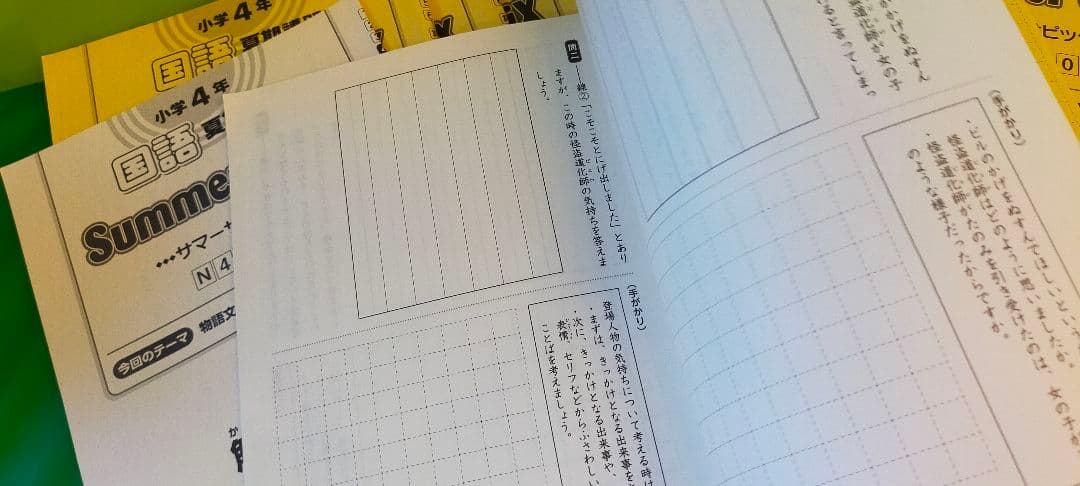 小学4年
国語
小学4年
国語
Summe
•••サマー
N4
今回のテーマ
物語文
問二
――線②「こそこそとにげ出しました」とあり
ますが、この時の怪盗道化師の気持ちを答えま
しょう。
(手がかり)
登場人物の気持ちについて考える時は
・まずは、きっかけとなる出来事を
・次に、きっかけとなる出来事や、
表情、セリフなどからふさわしい
ことばを考えましょう。
かげをぬすん
化師が女の子
ると言ってしまっ
(手がかり)
・ビルのかげをぬすんでほしいという
怪盗道化師はどのように思いましたか。
・怪盗道化師がたのみを引き受けたのは、女の子が
のような様子だったからですか。
ピッ
0